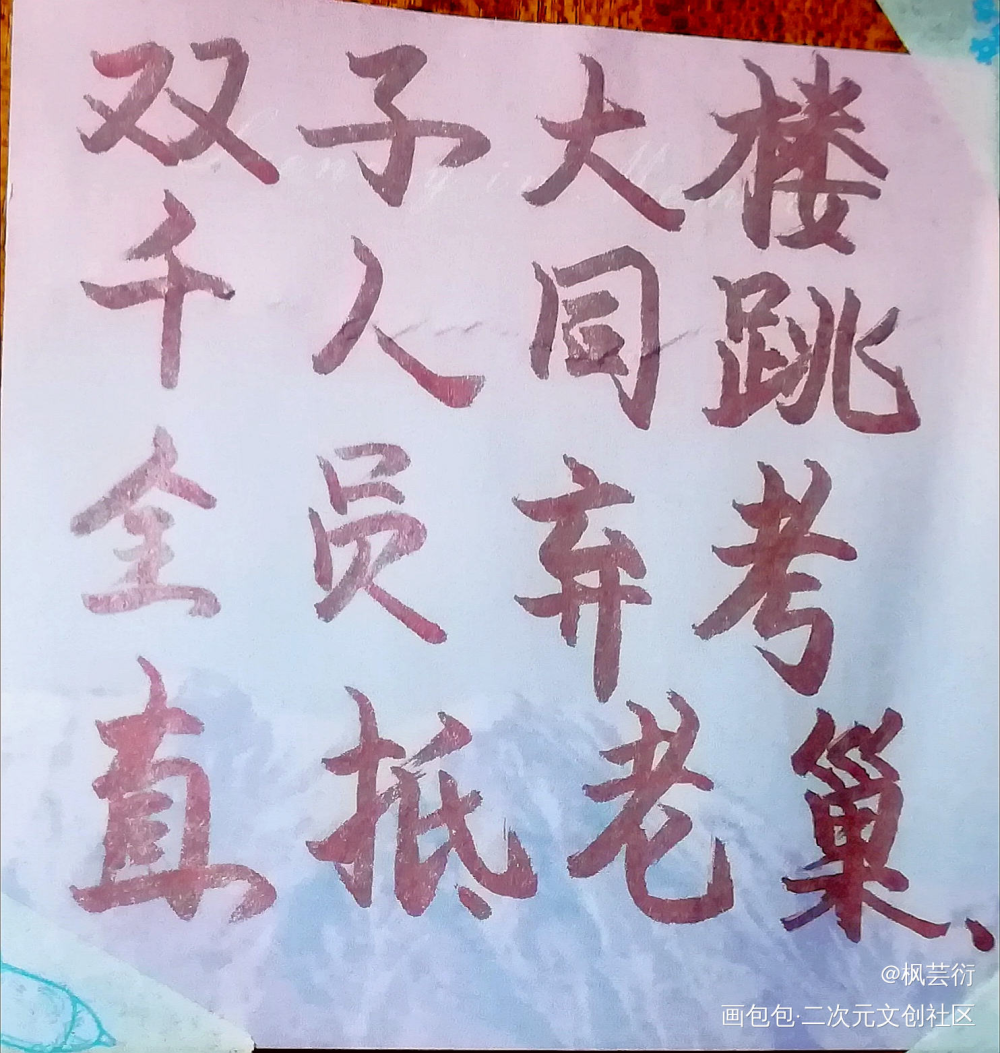 双子大楼
千人同跳
全员弃考
直抵老巢、
@枫芸衍
画包包·二次元文创社区